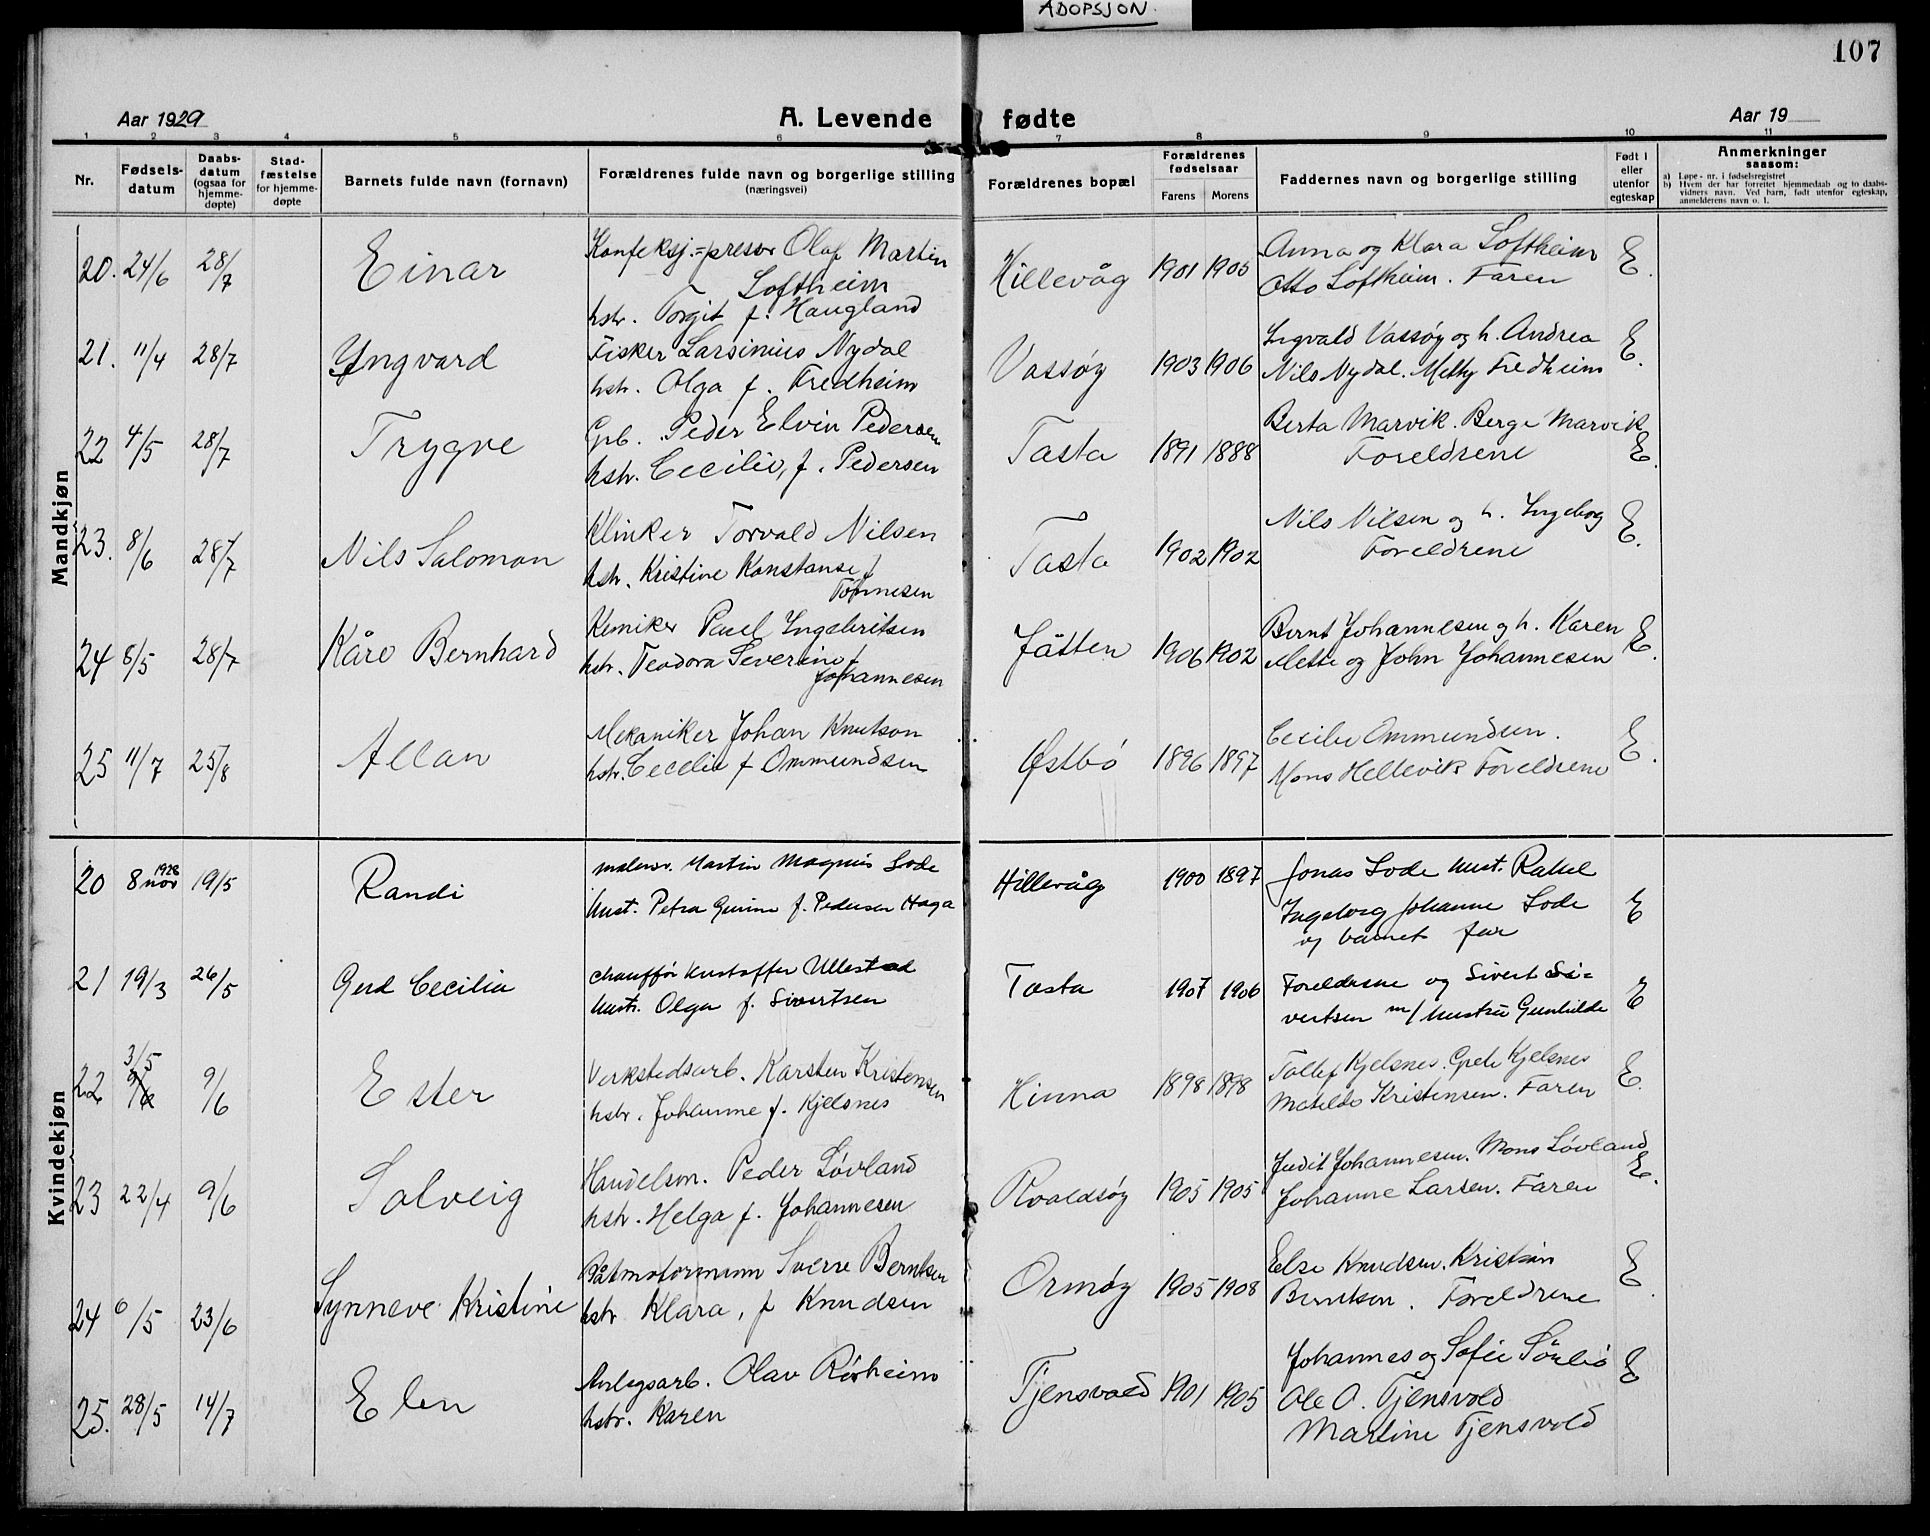 ADOPSJON.
107
Aar 1929
A. Levende fødte
Aar 19
1 2 3 4 5 6 7 8 9 10 11
Nr.
Fødsels-
datum
Daabs-
datum
(ogsaa for
hjemme-
døpte)
Stad-
fæstelse
for hjemme-
døpte
Barnets fulde navn (fornavn)
Forældrenes fulde navn og borgerlige stilling
(næringsvei)
Forældrenes bopæl
Forældrenes
fødselsaar
Farens Morens
Faddernes navn og borgerlige stilling
Født i
eller
utenfor
egteskap
Anmerkninger
saasom:
a) Løpe-nr. i fødselsregistret
b) Hvem der har forrettet hjemmedaab og to daabs-
vidners navn. Ved barn, født utenfor egteskap,
anmelderens navn o. l.
Mandkjøn
20. 24/6 28/7 Einar
Konfeksj.=presser Olaf Martin
Softheim
hstr. Torgit f. Haugland
Hillevåg 1901 1905
Anna og Klara Softheim
Otto Softheim. Faren
E.
21. 11/4 28/7 Yngvard
Fisker Larsinius Nydal
hstr. Olga f. Fredheim
Vassøy 1903 1906
Ingvald Vassøy og h. Andrea
Nils Nydal. Metty Fredheim
E.
22 4/5 28/7 Trygve
Grb. Peder Elvin Pedersen
hstr. Cecilie, f. Pedersen
Tasta 1891 1888
Berta Marvik. Berge Marvik
Foreldrene
E.
23. 8/6 28/7 Nils Salomon
Klinker Torvald Nilsen
hstr. Kristine Konstanse f
Tønnesen
Tasta 1902 1902
Nils Nilsen og h. Ingeborg
Foreldrene
E.
24 8/5 28/7 Kåre Bernhard
Kemiker Paul Ingebritsen
hstr. Teodora Severine f
Johannesen
Jåtten 1906 1902
Bernt Johannesen og h. Karen
Mette og John Johannesen
E.
25 11/7 25/8 Allan
Mekaniker Johan Knutson
hstr. Cecelie f Ommundsen
Østbø 1896 1897
Cecilie Ommundsen.
Mons Hellevik Foreldrene
E.
Kvindekjøn
20 8 nov 1928 19/5 Randi
malersv. Martin Magnus Lode
hust. Petra Gurine f. Pedersen Haga
Hillevåg 1900 1897
Jonas Lode hust. Rakel
Ingeborg Johanne Lode
og barnets far
E
21 19/3 26/5 Gerd Cecilie
chauffør Kristoffer Ullestad
hustr. Olga f. Sivertsen
Tasta 1907 1906
Foreldrene og Sivert Si=
vertsen m/ hustru Gunhilde
E
22 3/5 9/6 Ester
Verkstedsarb. Karsten Kristensen
hstr. Johanne f. Kjelsnes
Hinna 1898 1898
Tollef Kjelsnes. Grete Kjelsnes
Matilde Kristensen. Faren
E.
23 22/4 9/6 Solveig
Handelsm. Peder Løvland
hstr. Helga f. Johannesen
Roaldsøy 1905 1905
Judit Johannesen. Mons Løvland
Johanne Larsen. Faren
E.
24 6/5 23/6 Synneve Kristine
Båtmotormann Sverre Berntsen
hstr Klara, f Knudsen
Ormøy 1905 1908
Else Knudsen. Kristian
Berntsen. Foreldrene
E.
25. 28/5 14/7 Elen
Anlegsarb. Olav Rørheim
hstr. Karen
Tjensvold 1901 1905
Johannes og Sofie Sørbø
Ole O. Tjensvold
Martine Tjensvold
E